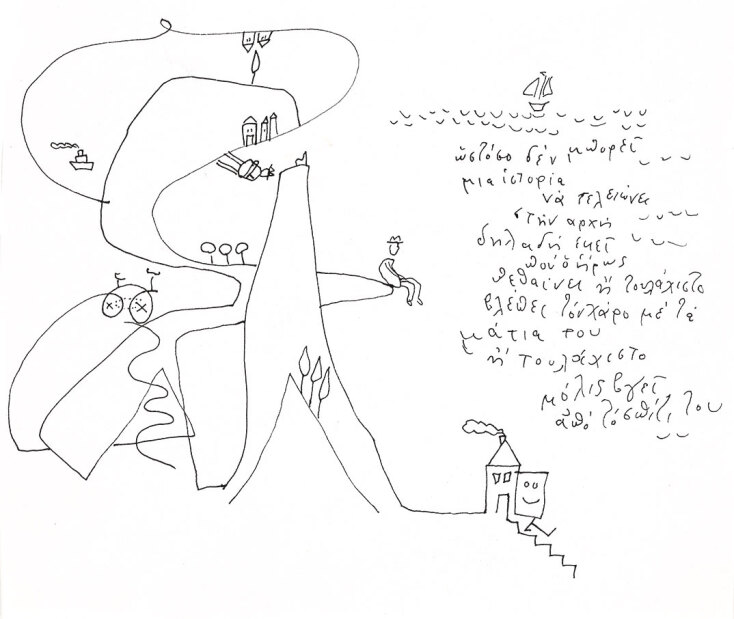 ὡστόσο δέν μπορεῖ
μια ἱστορία
νὰ τελειώνει
στὴν ἀρχή
δηλαδή ἐκεῖ
ποὺ ὁ ἥρως
πεθαίνει ἤ τουλάχιστο
βλέπει τόν χάρο μέ τὰ
μάτια του
ἤ τουλάχιστο
μόλις βγεῖ
ἀπό τό σπίτι του